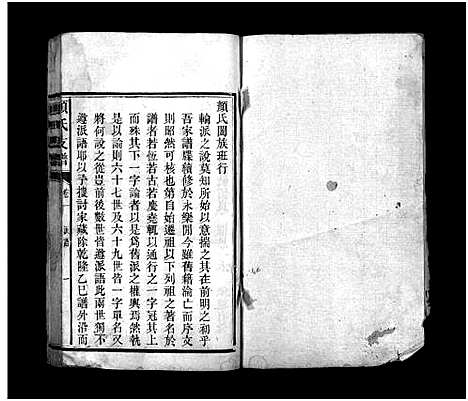 顏氏闔族班行
輪派之說莫知所始以意揣之其在前明之初乎
吾家譜牒續修於永樂間今雖舊籍淪亡而序文
則昭然可核也第自始遷祖以下列祖之著名於
譜者若恆若古若慶堯輒以通行之一字冠其上
而殊其下一字論者以是爲舊派之權輿焉然執
是以論則六十七世及六十九世皆一字單名又
將何說之從豈前後數世皆遵派語此兩世獨不
遵派語耶以予摟討家藏除乾隆乙巳譜外沿而
顏氏支譜
卷一
派語
一